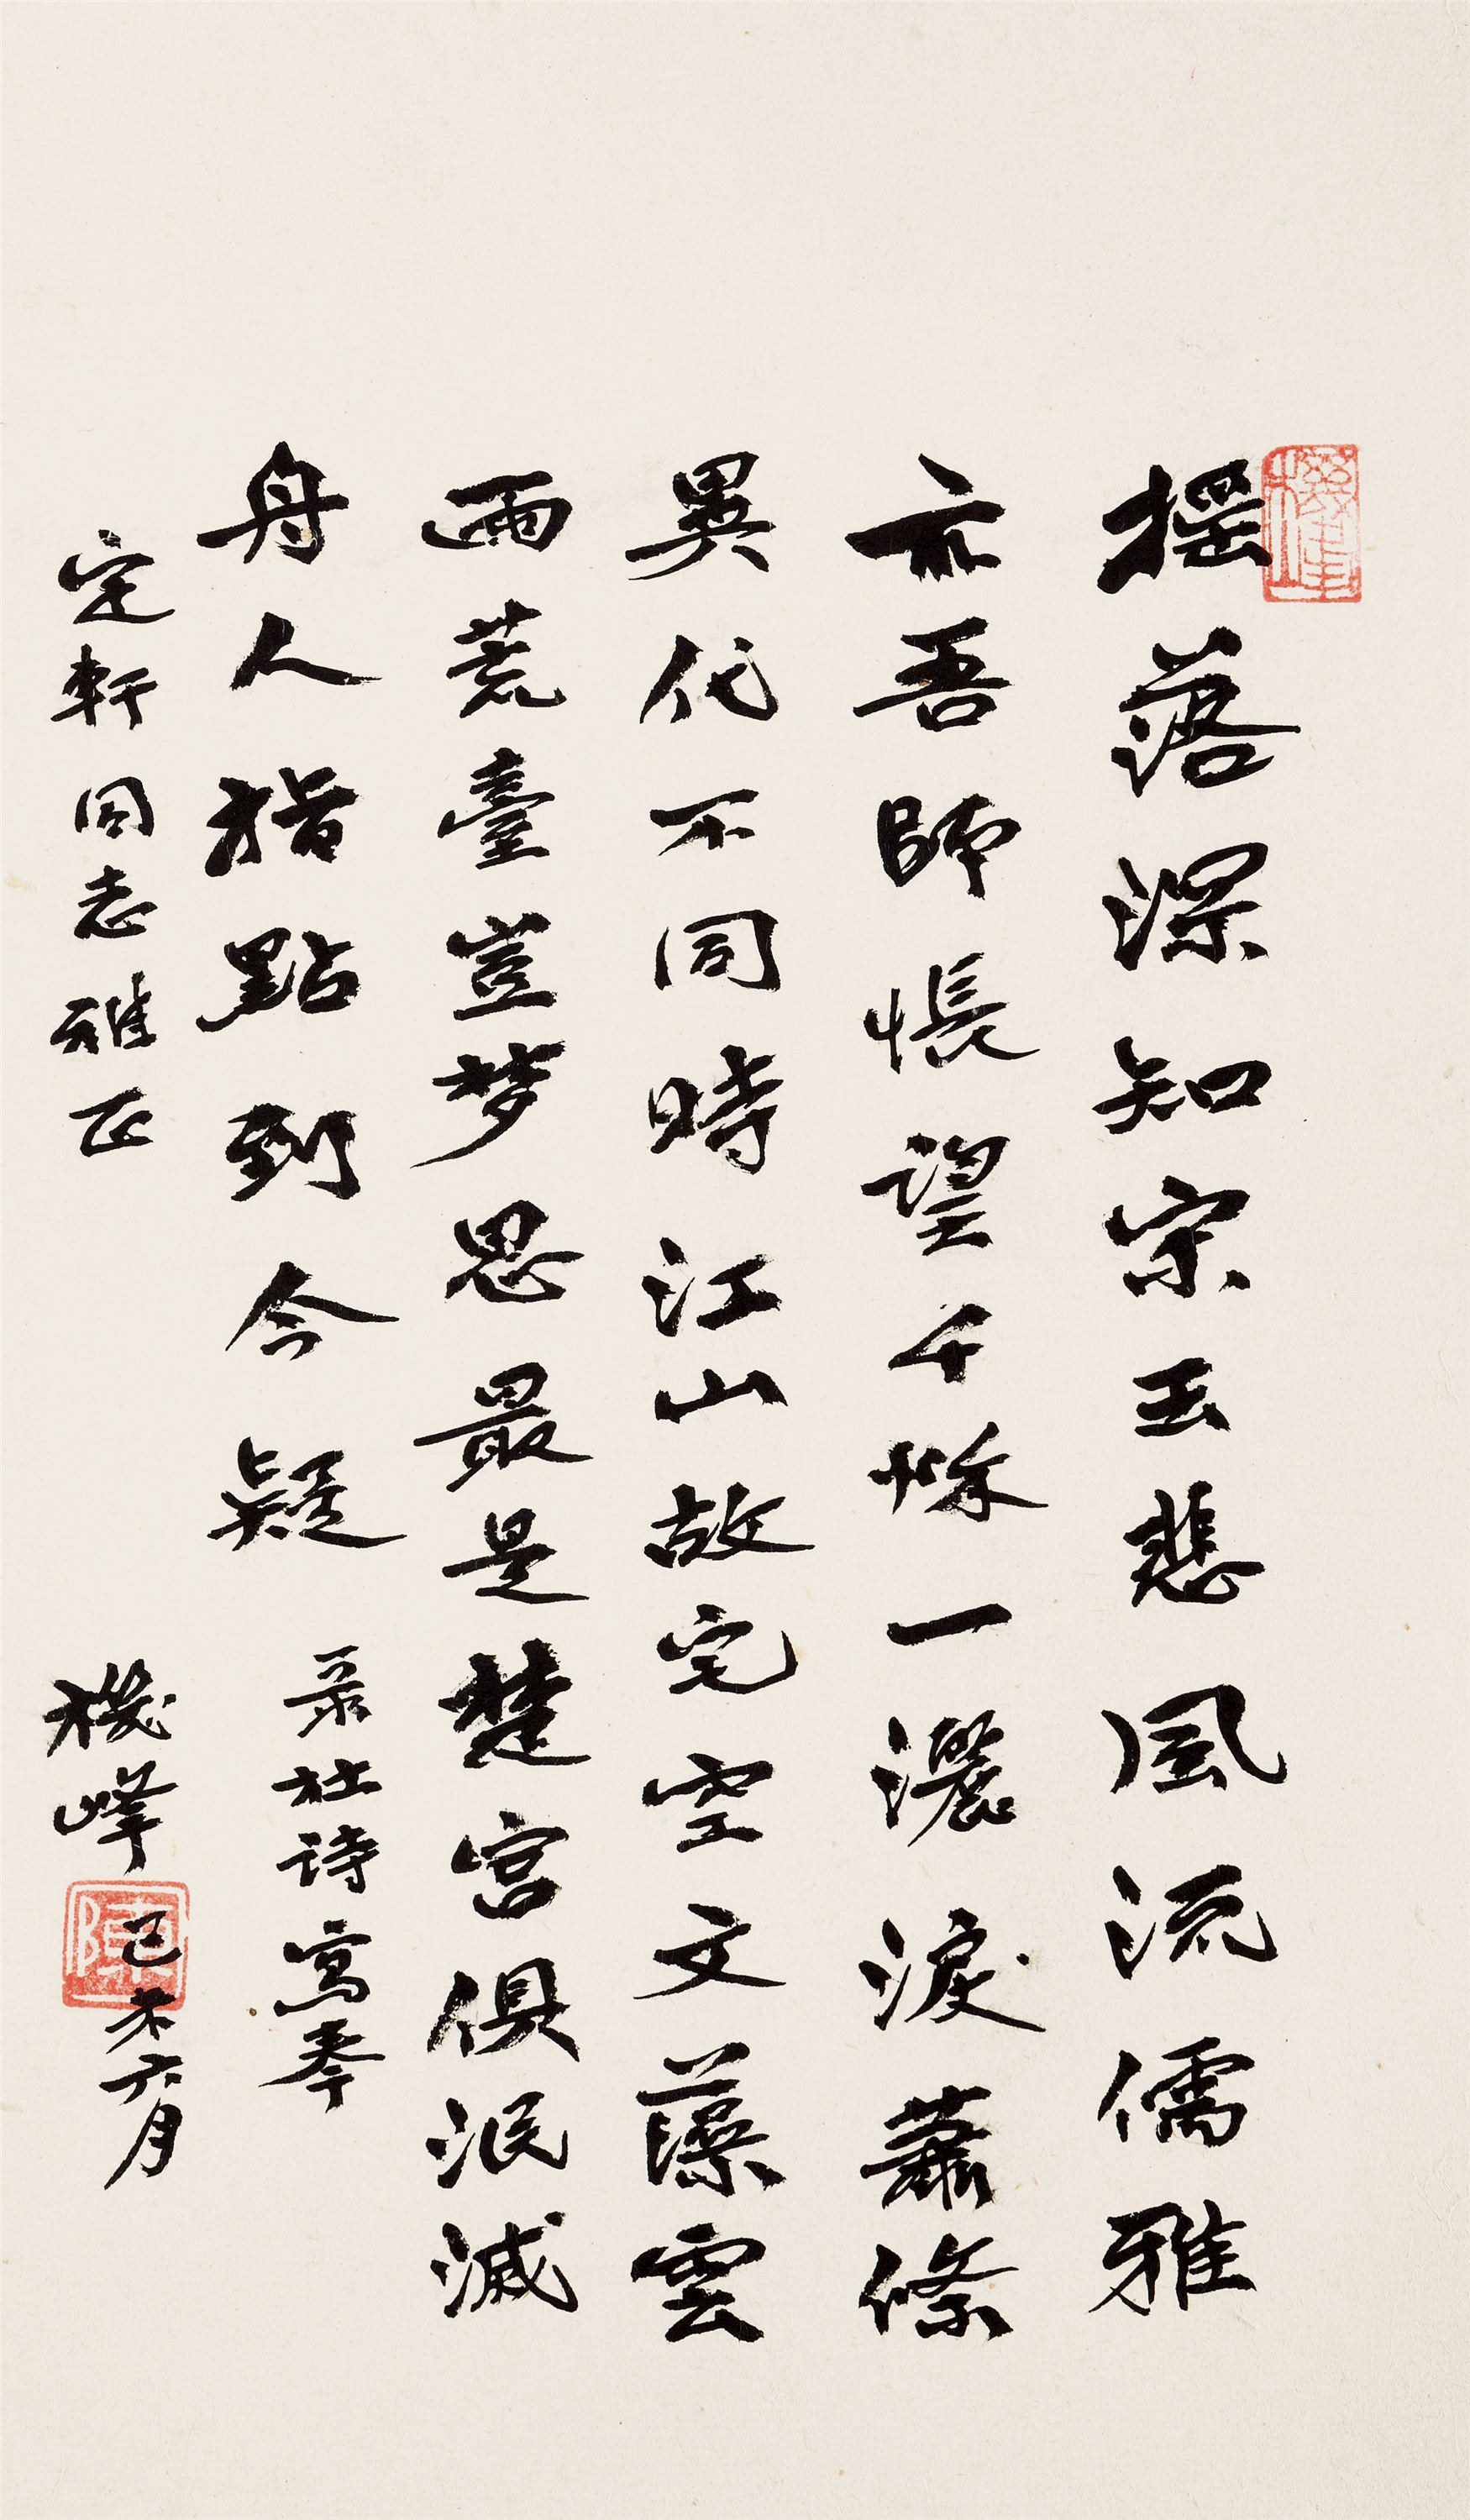 摇落深知宋玉悲風流儒雅
亦吾師悵望千秋一灑淚蕭條
異代不同時江山故宅空文藻雲
雨荒臺豈梦思最是楚宮俱泯滅
舟人指點到今疑
录杜诗寫奉
定軒同志雅正
機峰
己未六月
陳